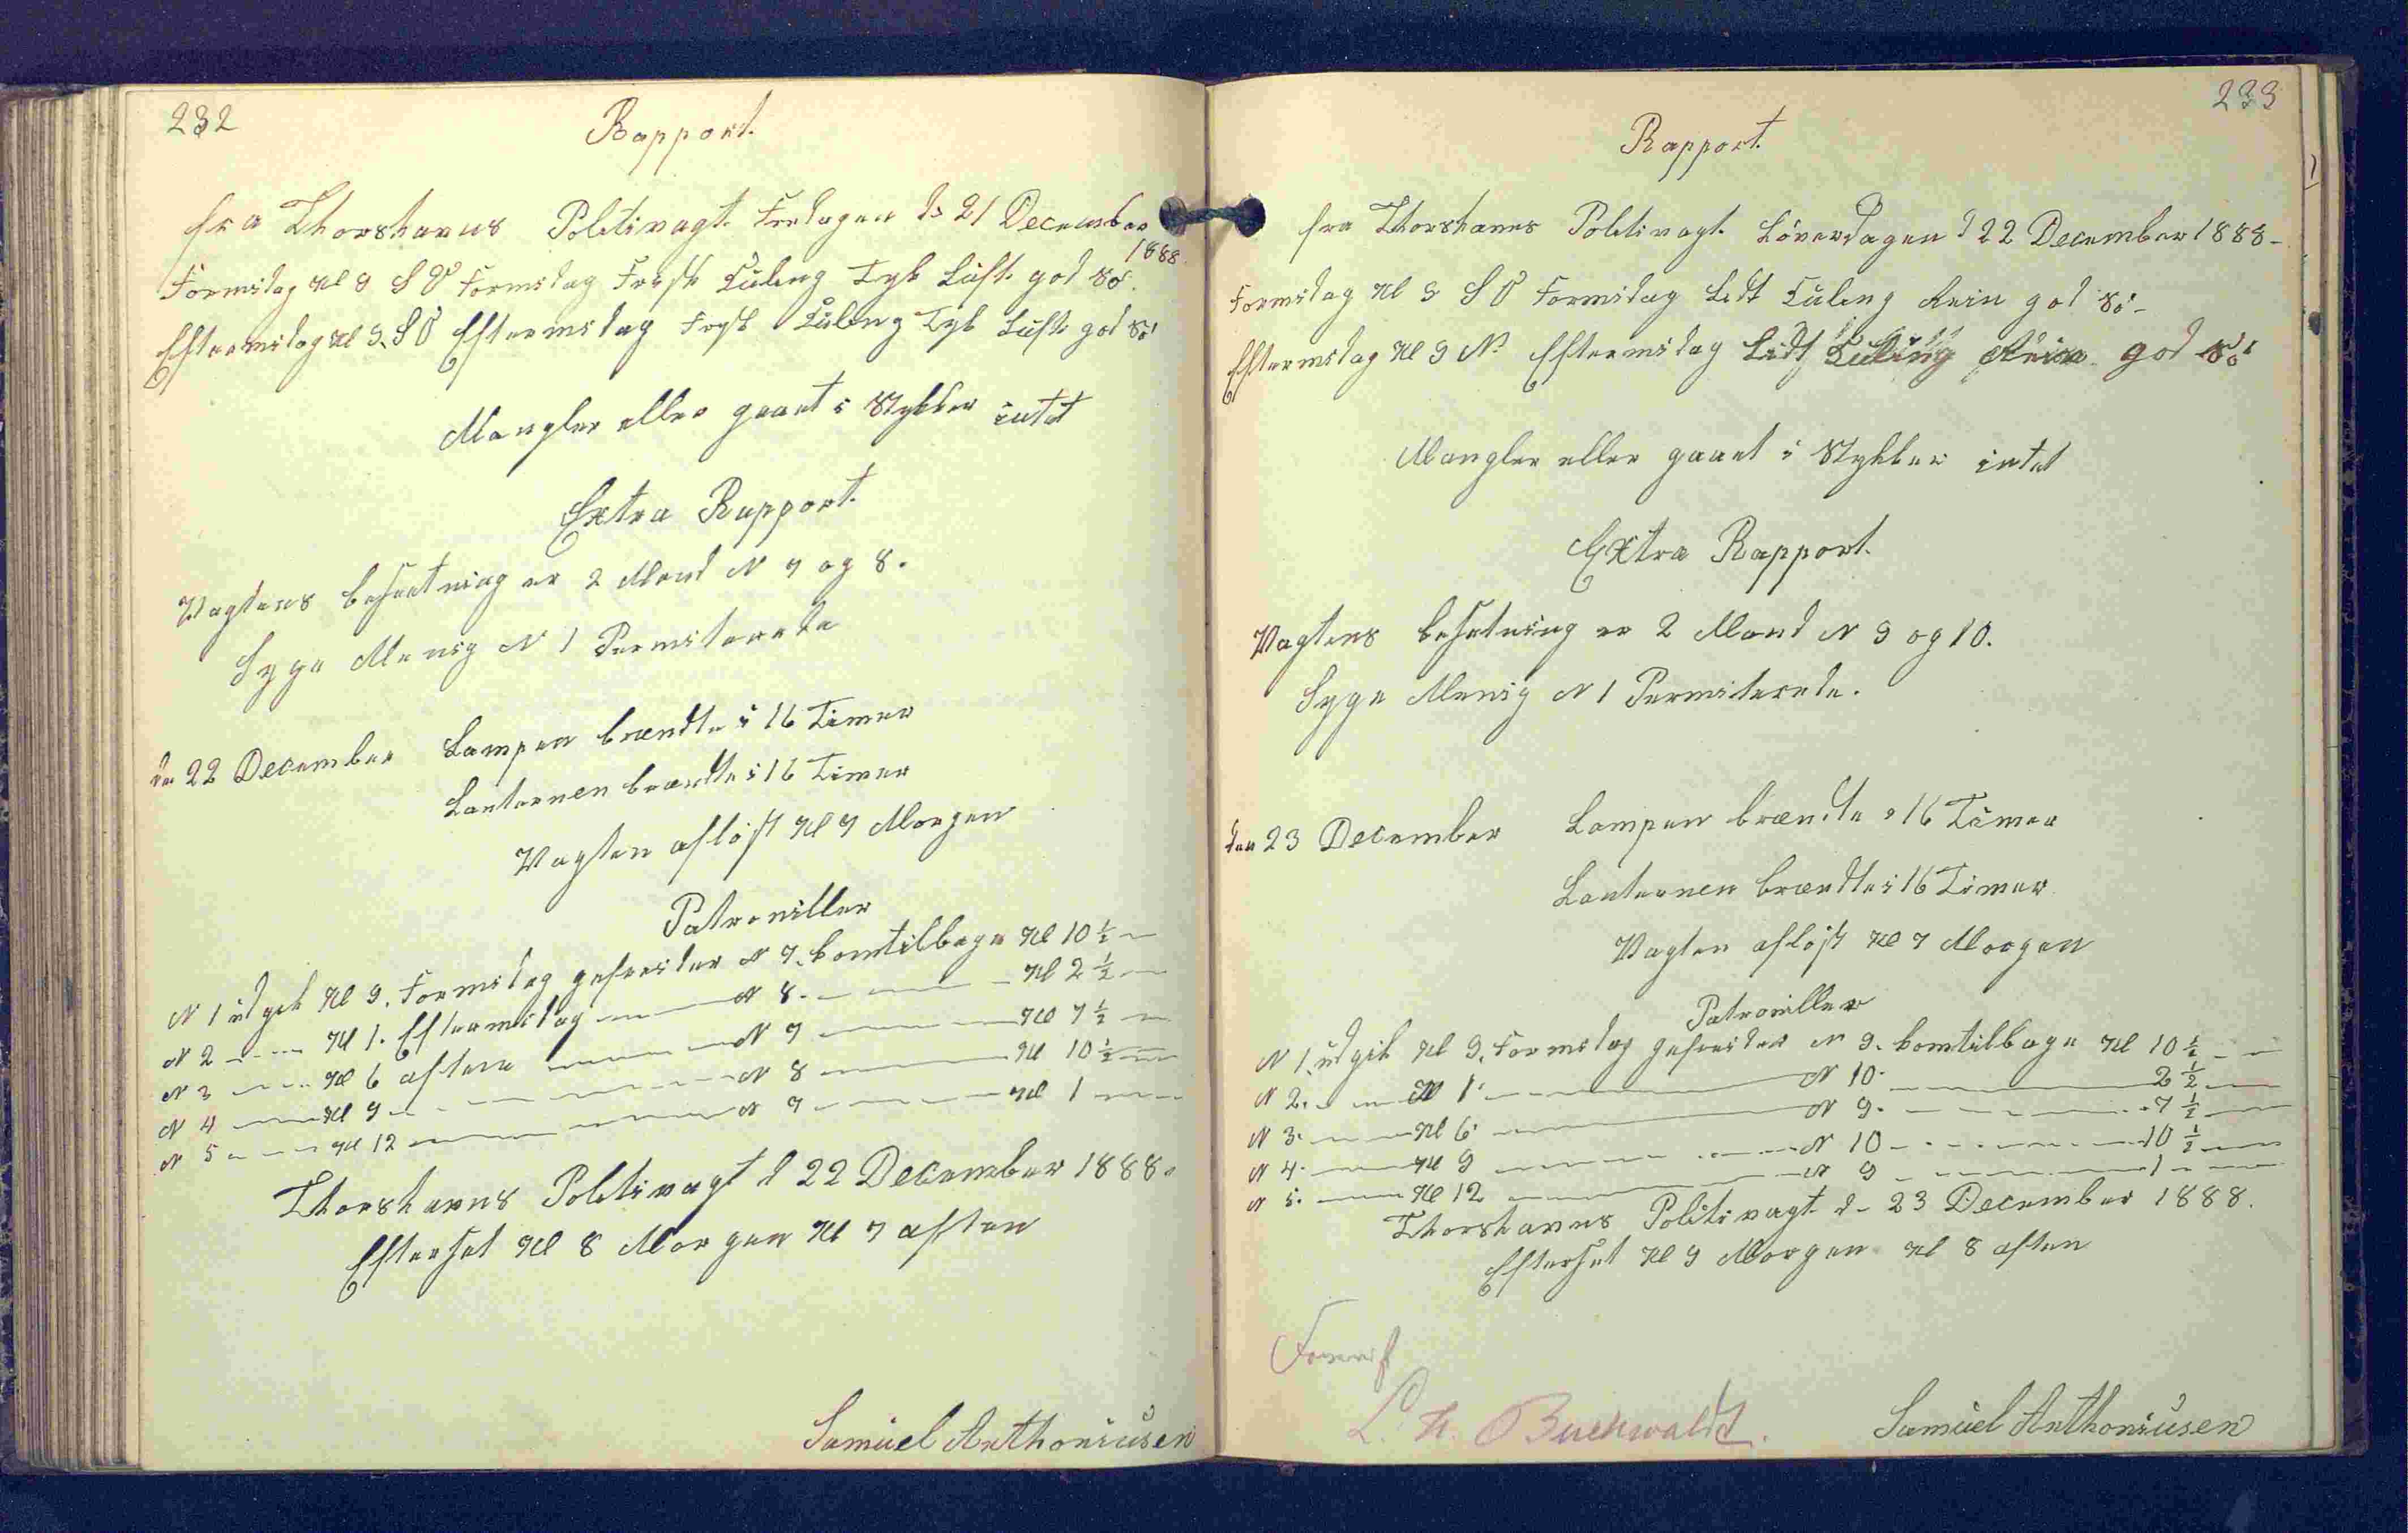 232
Rapport.
fra Thorshavns Politivagt. Fredagen d. 21 December
1888.
Formidag Kl 9 SV Formidag Frisk Kuling Tyk Luft god Sö.
Eftermidag Kl 3. SO Eftermidag Frysk Kuling Tyk Luft god Sö
Mangler eller gaaet i Stykker intet
Extra Rapport.
Vagtens besætning er 2 Mand N 7 og 8.
Syge Menig N 1 Permiterede
den 22 December Lampen brændte i 16 Timer
Lanternen brændte i 16 Timer
Vagten aflöst Kl 7 Morgen
Patroniller
N 1 udgik Kl 9. Formidag gefreider N 7. komtilbage Kl 10 1/2 —
N 2 — Kl 1. Eftermidag — N 8. — Kl 2 1/2 —
N 3 — Kl 6 aften — N 7 — Kl 7 1/2 —
N 4 — Kl 9 — N 8 — Kl 10 1/2 —
N 5 — Kl 12 — N 7 — Kl 1 —
Thorshavns Politivagt d 22 December 1888.
Efterset Kl 8 Morgen Kl 7 aften
Samuel Anthoniusen
233
Rapport.
fra Thorshavns Politivagt. Löverdagen d 22 December 1888-
Formidag Kl 9 SO Formidag Lidt Kuling Rein god Sö-
Eftermidag Kl 3 N. Eftermidag Lidt Kuling Rein god Sö
Mangler eller gaaet i Stykker intet
Extra Rapport.
Vagtens besetning er 2 Mand N 9 og 10.
Syge Menig N 1 Permiterede.
den 23 December Lampen brændte i 16 Timer
Lanternen brændte i 16 Timer
Vagten aflöst Kl 7 Morgen
Patroniller
N 1. udgik Kl 9. Formidag gefreider N 9. komtilbage Kl 10 1/2 —
N 2. — Kl 1. — N 10. — 2 1/2 —
N 3. — Kl 6 — N 9. — 7 1/2 —
N 4. — Kl 9 — N 10 — 10 1/2 —
N 5. — Kl 12 — N 9 — 1 —
Thorshavns Politivagt d- 23 December 1888.
Efterset Kl 9 Morgen Kl 8 aften
Forevist
L. H. Buchwaldt.
Samuel Anthoniusen